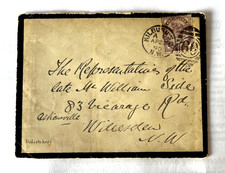 KILBURN
N.W.
The Representatives of the
late Mr William Side
83 Vicarage Rd
Willesden
N.W.